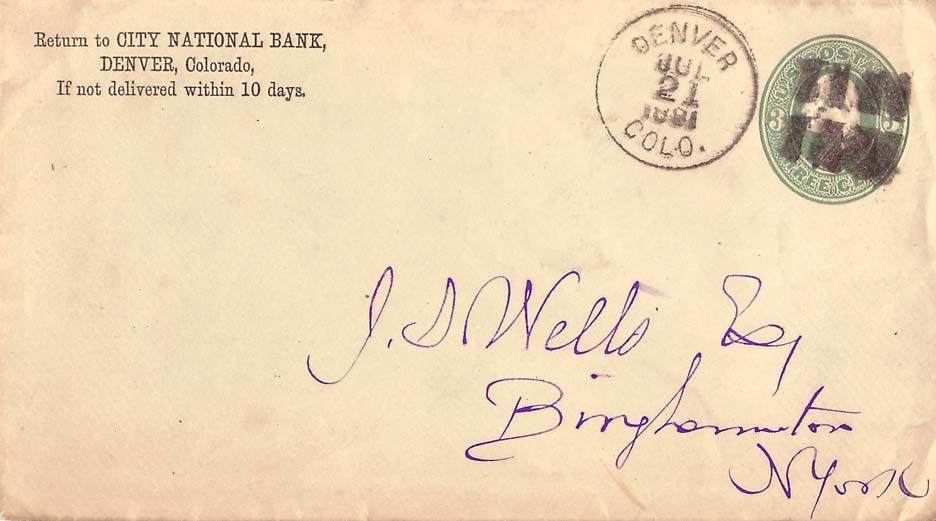 Return to CITY NATIONAL BANK,
DENVER, Colorado,
If not delivered within 10 days.
DENVER
JUL
21
1881
COLO.
U.S. POSTA
3
3
REE CE
J. S. Wells Esq
Binghamton
N York